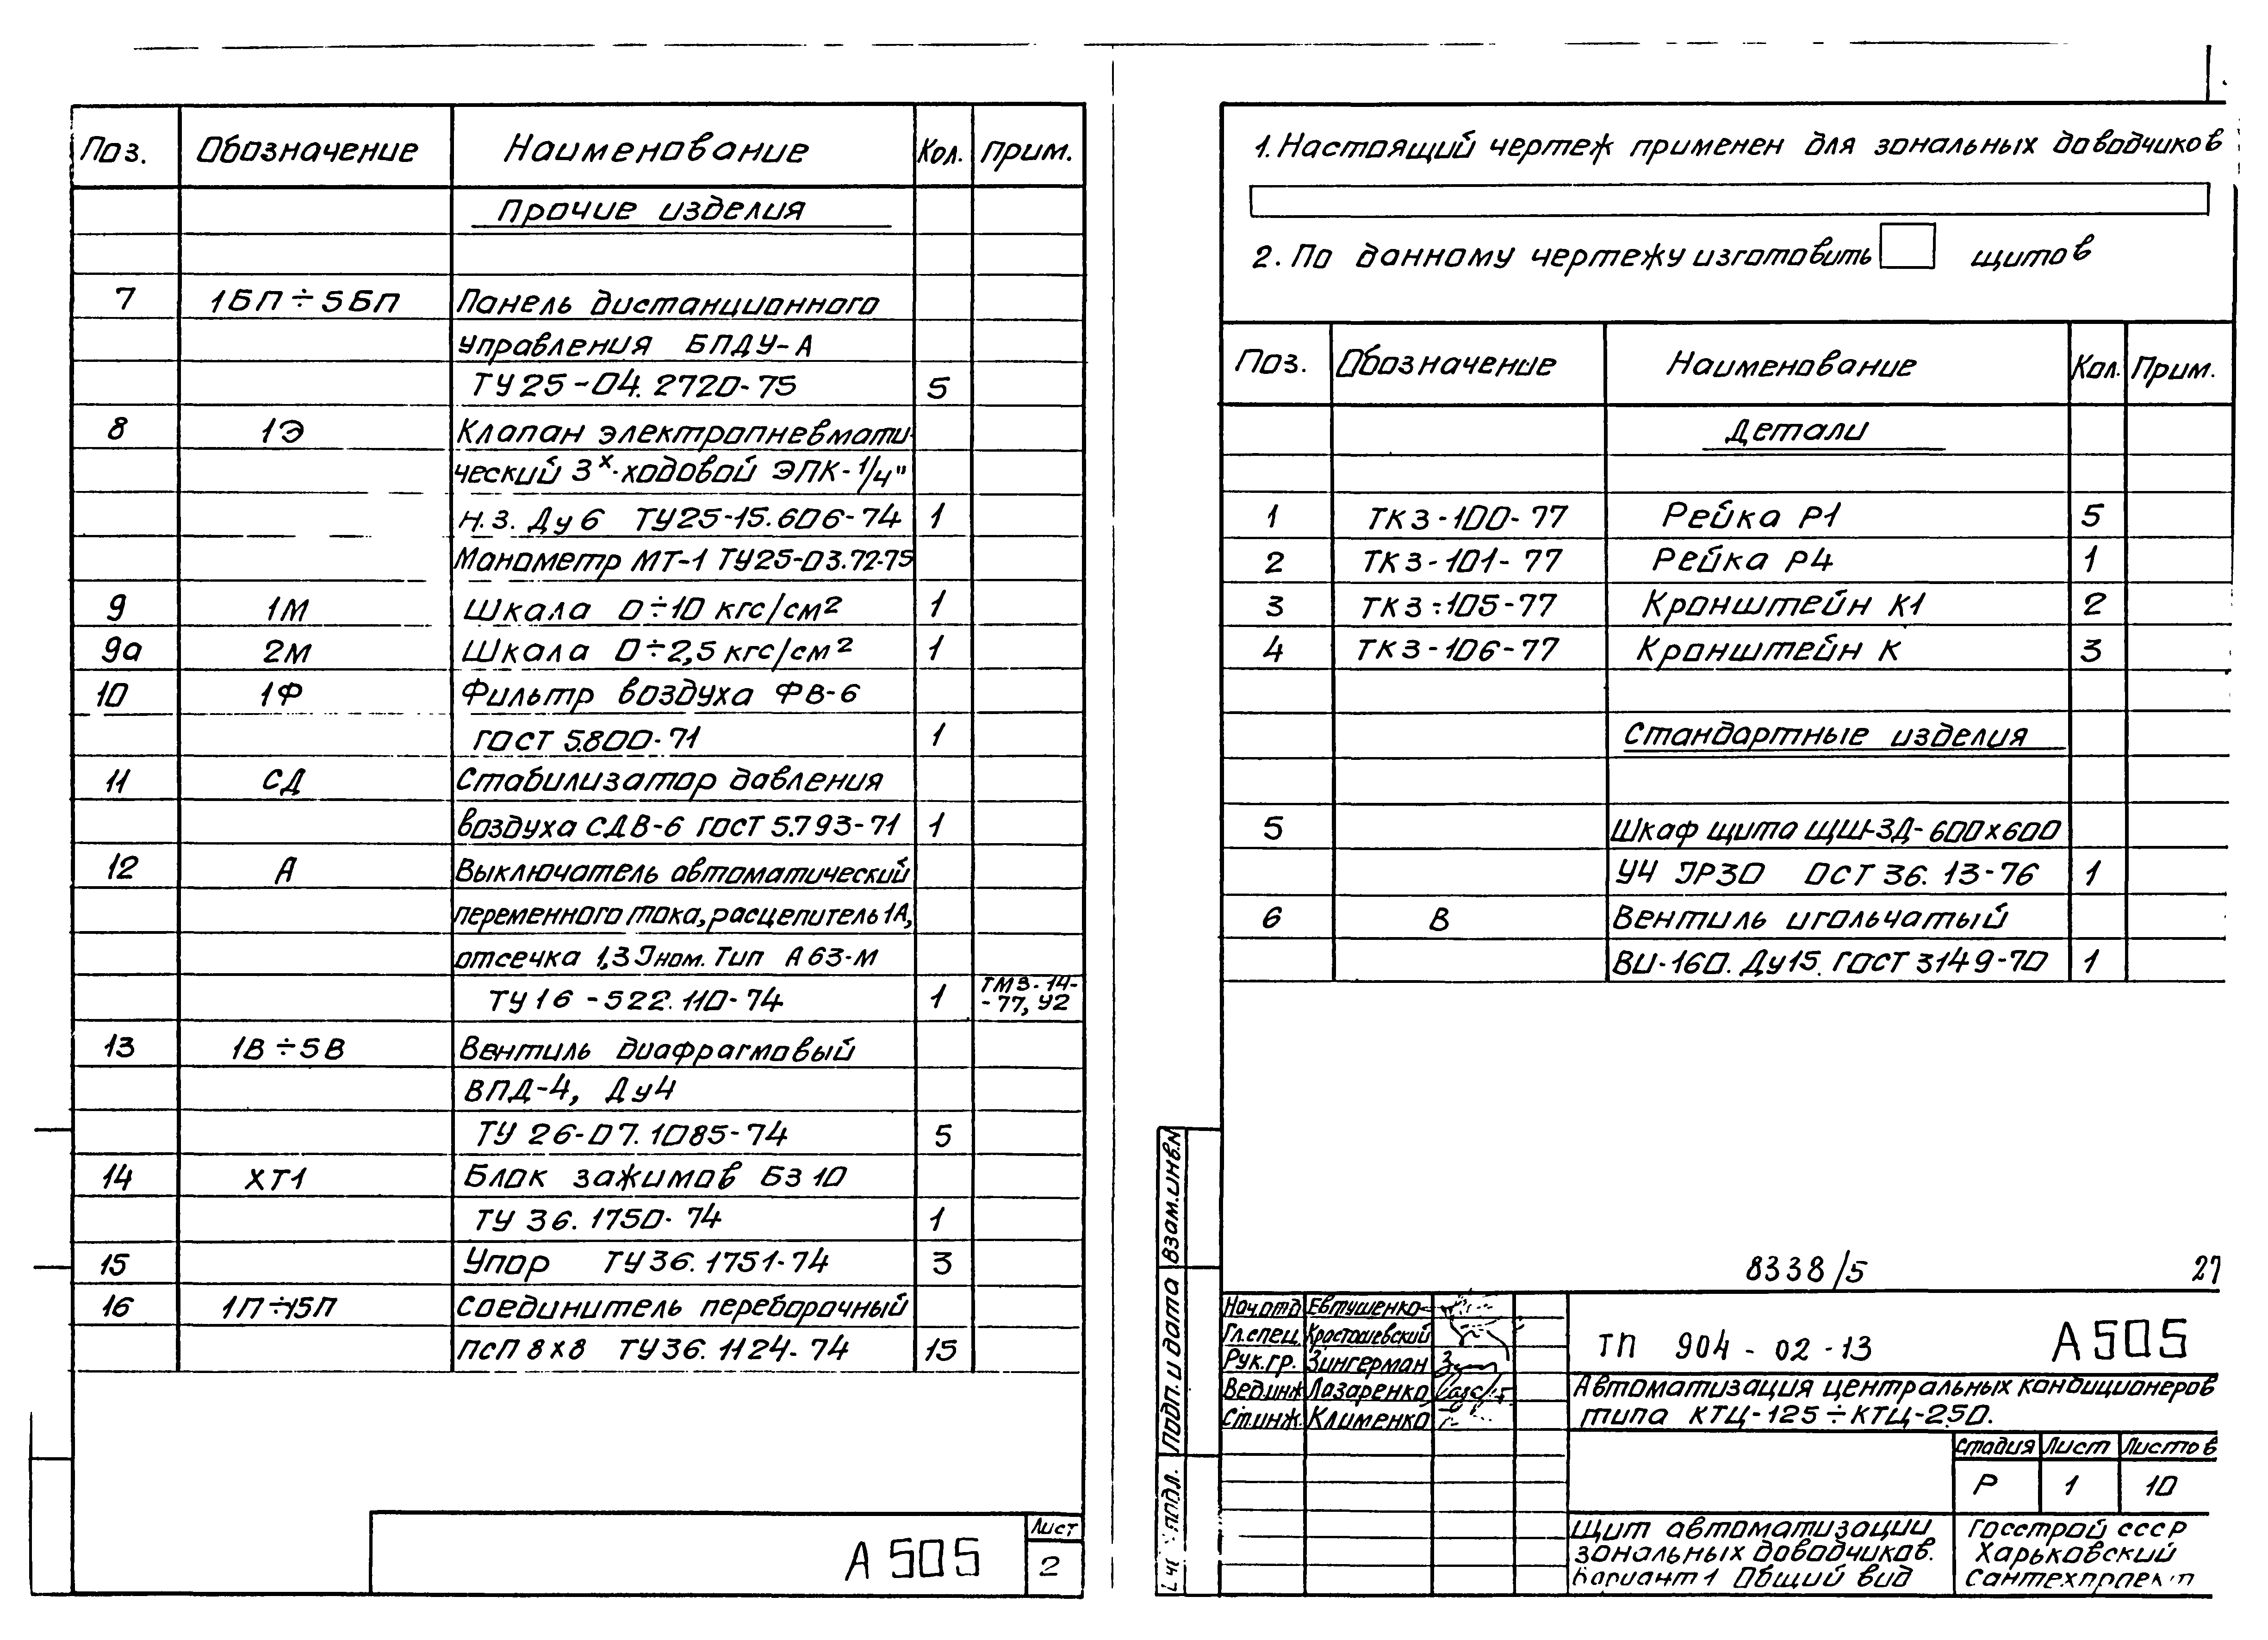 Поз. Обозначение Наименование Кол. прим.
Прочие изделия
7 1БП÷5БП Панель дистанционного
управления БПДУ-А
ТУ25-04.2720-75 5
8 1Э Клапан электропневмати-
ческий 3х-ходовой ЭПК-1/4"
н.з. Ду6 ТУ25-15.606-74 1
Манометр МТ-1 ТУ25-03.72-75
9 1М Шкала 0÷10 кгс/см² 1
9а 2М Шкала 0÷2,5 кгс/см² 1
10 1Ф Фильтр воздуха ФВ-6
ГОСТ 5.800-71 1
11 СД Стабилизатор давления
воздуха СДВ-6 ГОСТ 5.793-71 1
12 А Выключатель автоматический
переменного тока, расцепитель 1А,
отсечка 1,3 Jном. Тип А63-М
ТУ16-522.110-74 1 ТМ3-14-
-77, У2
13 1В÷5В Вентиль диафрагмовый
ВПД-4, Ду4
ТУ 26-07.1085-74 5
14 ХТ1 Блок зажимов БЗ 10
ТУ 36.1750-74 1
15 Упор ТУ36.1751-74 3
16 1П÷15П Соединитель переборочный
ПСП 8х8 ТУ36.1124-74 15
А505
Лист
2
1. Настоящий чертеж применен для зональных доводчиков
2. По данному чертежу изготовить щитов
Поз. Обозначение Наименование Кол. Прим.
Детали
1 ТК3-100-77 Рейка Р1 5
2 ТК3-101-77 Рейка Р4 1
3 ТК3-105-77 Кронштейн К1 2
4 ТК3-106-77 Кронштейн К 3
Стандартные изделия
5 Шкаф щита ЩШ-ЗД-600х600
У4 JP30 ОСТ 36.13-76 1
6 В Вентиль игольчатый
ВИ-160. Ду15. ГОСТ 3149-70 1
8338/5 27
Взам.инв.№
Подп. и дата
подл.
Нач.отд Евтушенко
Гл.спец. Красташевский
Рук.гр. Зингерман
Вед.инж Лазаренко
Ст.инж. Клименко
ТП 904-02-13 А505
Автоматизация центральных кондиционеров
типа КТЦ-125÷КТЦ-250.
Стадия Лист Листов
Р 1 10
Щит автоматизации
зональных доводчиков.
Вариант 1 Общий вид
Госстрой СССР
Харьковский
Сантехпроект